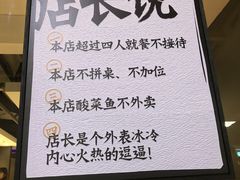 店长说
一 本店超过四人就餐不接待
二 本店不拼桌、不加位
三 本店酸菜鱼不外卖
四 店长是个外表冰冷
内心火热的逗逼！